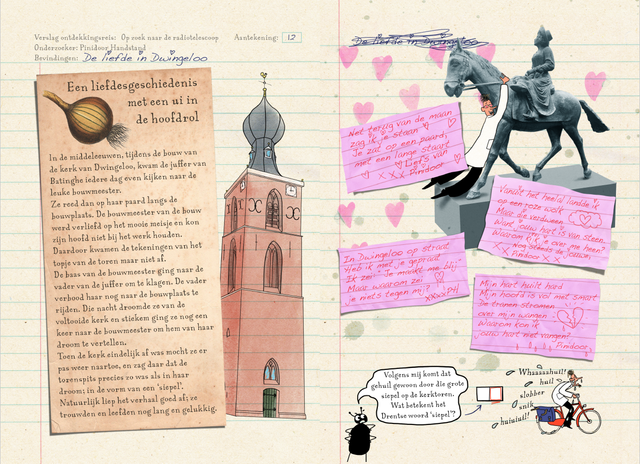 Verslag ontdekkingsreis: Op zoek naar de radiotelescoop Aantekening: 12
Onderzoeker: Pinidoor Handstand
Bevindingen: De liefde in Dwingeloo
Een liefdesgeschiedenis
met een ui in
de hoofdrol
In de middeleeuwen, tijdens de bouw van
de kerk van Dwingeloo, kwam de juffer van
Batinghe iedere dag even kijken naar de
leuke bouwmeester.
Ze reed dan op haar paard langs de
bouwplaats. De bouwmeester van de bouw
werd verliefd op het mooie meisje en kon
zijn hoofd niet bij het werk houden.
Daardoor kwamen de tekeningen van het
topje van de toren maar niet af.
De baas van de bouwmeester ging naar de
vader van de juffer om te klagen. De vader
verbood haar nog naar de bouwplaats te
rijden. Die nacht droomde ze van de
voltooide kerk en stiekem ging ze nog een
keer naar de bouwmeester om hem van haar
droom te vertellen.
Toen de kerk eindelijk af was mocht ze er
pas weer naartoe, en zag daar dat de
torenspits precies zo was als in haar
droom; in de vorm van een 'siepel'.
Natuurlijk liep het verhaal goed af; ze
trouwden en leefden nog lang en gelukkig.
De liefde in Dwingeloo
Net terug van de maan
zag ik je staan
Je zat op een paard,
met een lange staart
Liefs van
xxx Pinidoor
Vanuit het heelal landde ik
op een roze wolk
Maar die verdween
Jouw hart is van steen,
Waarom kijk je over me heen?
Nog steeds de jouwe,
Pinidoor xxx
In Dwingeloo op straat
Heb ik met je gepraat
Ik zei: Je maakt me blij
Maar waarom zei
je niets tegen mij?
xxxx PH
Mijn hart huilt hard
Mijn hoofd is vol met smart
De tranen stromen
over mijn wangen
Waarom kon ik
jouw hart niet vangen?
Pinidoor
Volgens mij komt dat
gehuil gewoon door die grote
siepel op de kerktoren.
Wat betekent het
Drentse woord 'siepel'?
Whaaaahuil!
huil
slobber
snik
huiuiuil!